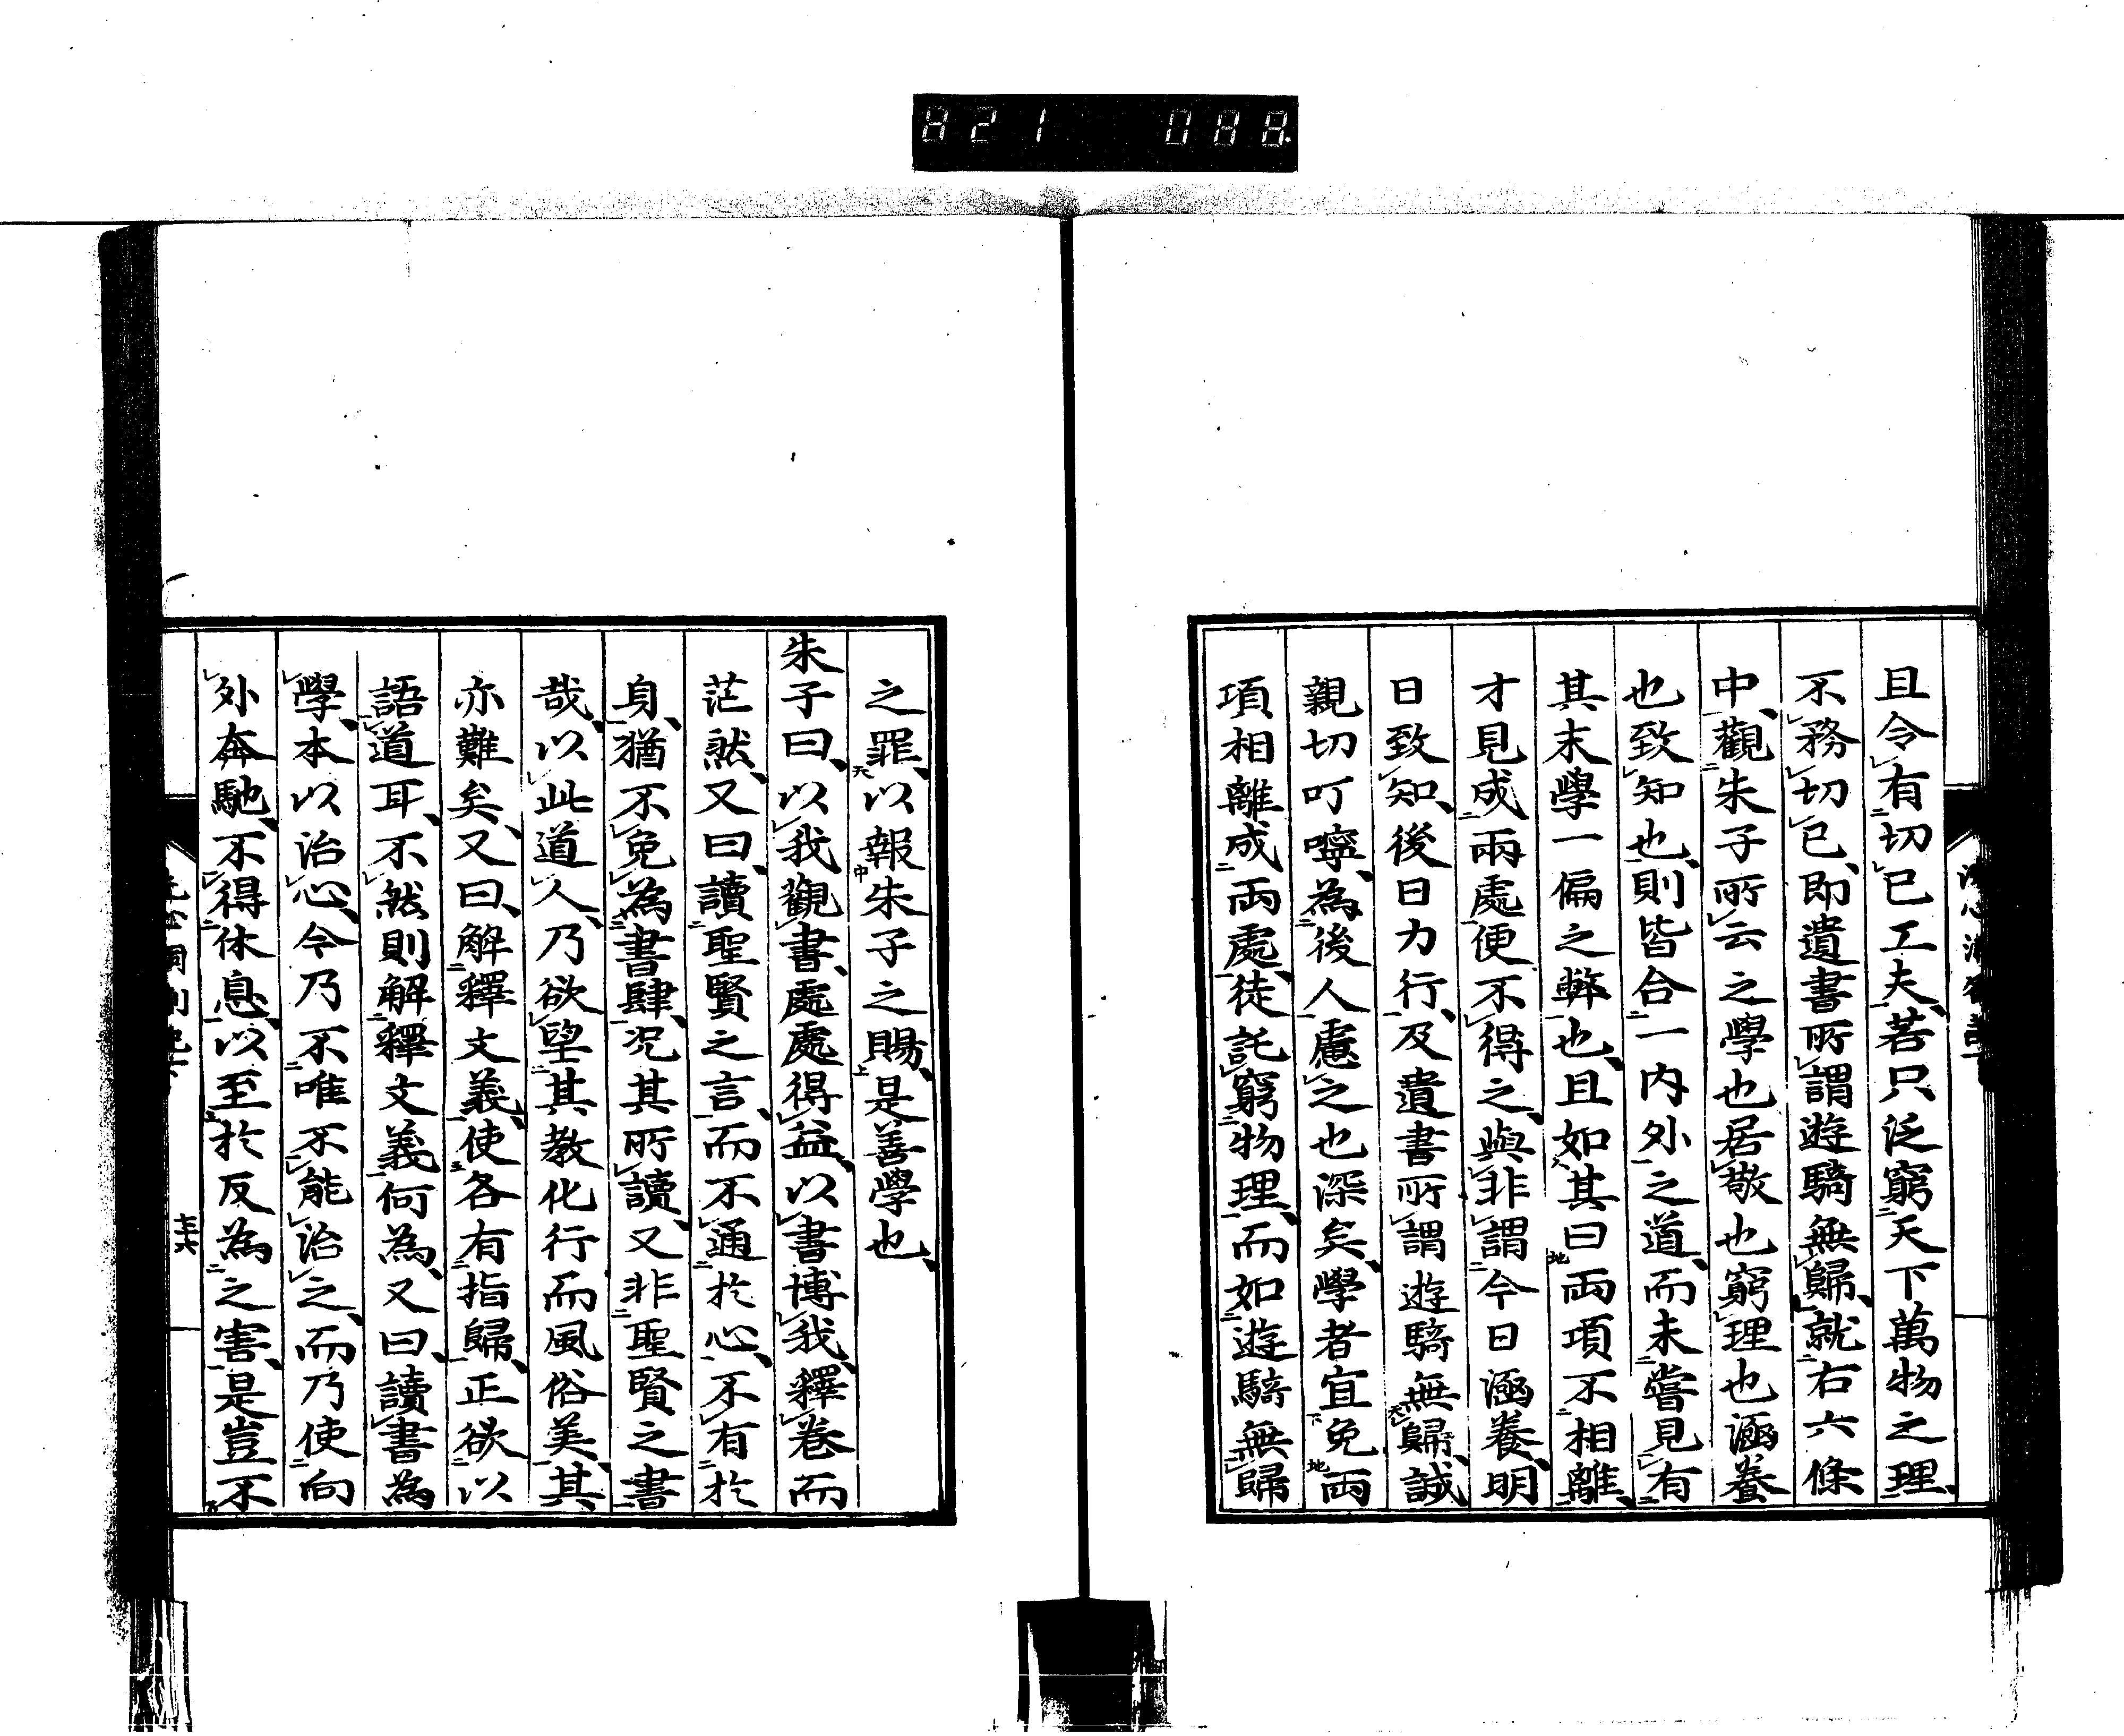 821 088
且令有切已工夫、若只泛窮天下萬物之理、
不務切已、即遺書所謂遊騎無歸、就右六條
中、觀朱子所云之學也居敬也窮理也涵養
也致知也、則皆合一内外之道、而未嘗見有
其末學一偏之弊也、且如其曰兩項不相離、
才見成兩處便不得之、與非謂今日涵養、明
日致知、後日力行、及遺書所謂遊騎無歸、誠
親切叮嚀、為後人慮之也深矣、學者宜免兩
項相離成兩處、徒託窮物理、而如遊騎無歸
之罪、以報朱子之賜、是善學也、
朱子曰、以我觀書、處處得益、以書博我、釋卷而
茫然、又曰、讀聖賢之言、而不通於心、不有於
身、猶不免為書肆、況其所讀、又非聖賢之書
哉、以此道人、乃欲望其教化行而風俗美、其
亦難矣、又曰、解釋文義、使各有指歸、正欲以
語道耳、不然則解釋文義何為、又曰、讀書為
學、本以治心、今乃不唯不能治之、而乃使向
外奔馳、不得休息、以至於反為之害、是豈不